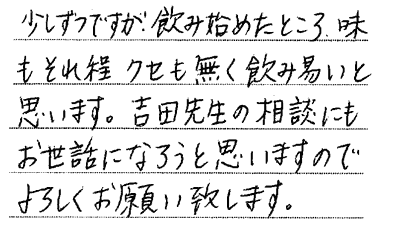 少しずつですが、飲み始めたところ、味
もそれ程 クセも無く飲み易いと
思います。吉田先生の相談にも
お世話になろうと思いますので
よろしくお願い致します。